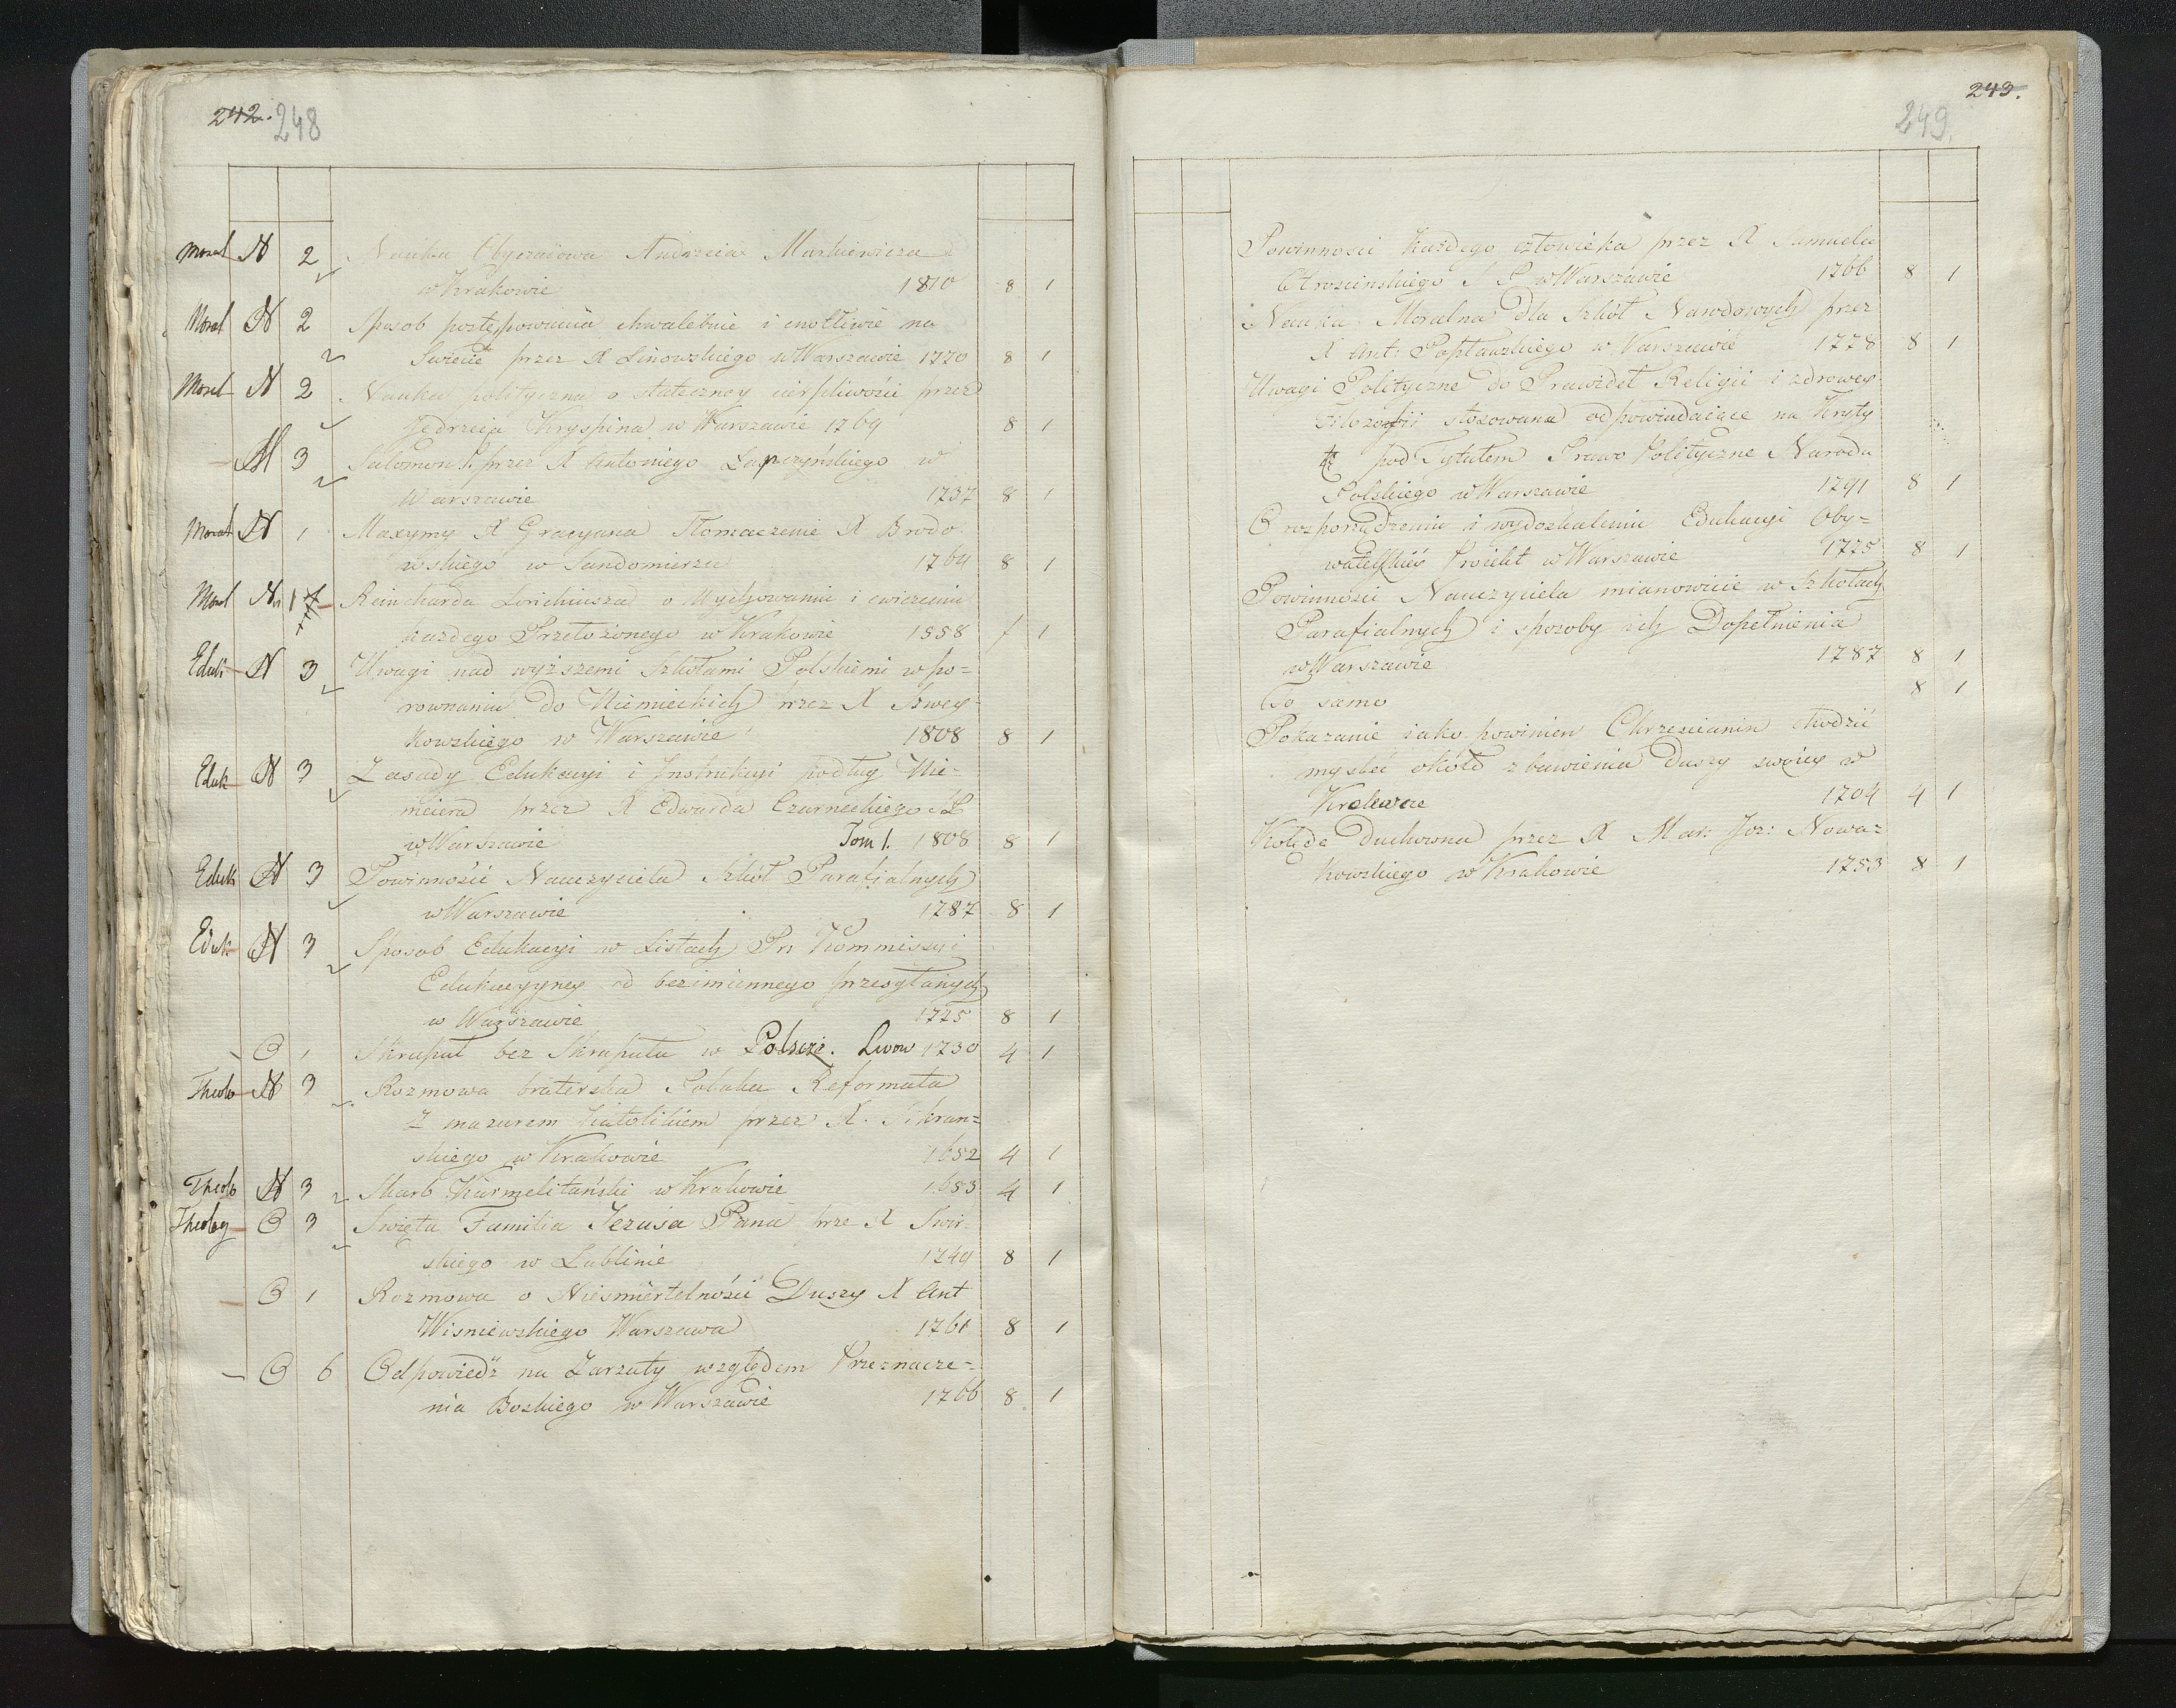 242. 248
Moral N 2 Nauka Obyczaiowa Andrzeia Markiewicza
w Krakowie 1810 8 1
Moral N 2 Sposob postępowania chwalebnie i cnotliwie na
Swiecie przez X Linowskiego w Warszawie 1770 8 1
Moral N 2 Nauka polityczna o stateczney cierpliwości przez
Jędrzeia Kryspina w Warszawie 1769 8 1
N 3 Salomon P. przez X Antoniego Łapczyńskiego w
Warszawie 1737 8 1
Moral N 1 Maxymy X Gracyana Tłomaczenie X Brodo
wskiego w Sandomierzu 1764 8 1
Moral N 1 Reincharda Lorichiusza o Wychowaniu i cwiczeniu
każdego Przełożonego w Krakowie 1558 f 1
Eduk N 3 Uwagi nad wyższemi Szkołami Polskiemi w po=
rownaniu do Niemieckich przez X Szwey-
kowskiego w Warszawie 1808 8 1
Eduk N 3 Zasady Edukacyi i Instrukcyi podług Nie=
meiera przez X Edwarda Czarneckiego S P
w Warszawie Tom 1. 1808 8 1
Eduk N 3 Powinności Nauczyciela Szkół Parafialnych
w Warszawie 1787 8 1
Eduk N 3 Sposob Edukacyi w Listach Pn Kommissyi
Edukacyyney od bezimiennego przesyłanych
w Warszawie 1775 8 1
O 1 Skrupuł bez Skrupułu w Polszcze. Lwow 1730 4 1
Theolo N 3 Rozmowa braterska Polaka Reformata
Z mazurem Katolikiem przez X.
skiego w Krakowie 1652 4 1
Theolo N 3 Skarb Karmelitański w Krakowie 1653 4 1
Theolog O 3 Swięta Familia Jezusa Pana prze X Swir-
skiego w Lublinie 1749 8 1
O 1 Rozmowa o Niesmiertelności Duszy X Ant
Wisniewskiego Warszawa 1761 8 1
O 6 Odpowiedź na Zarzuty względem Przeznacze-
nia Boskiego w Warszawie 1766 8 1
243.
249.
Powinnosci Każdego człowieka przez X Samuela
Chroscinskiego S P w Warszawie 1766 8 1
Nauka Moralna dla Szkół Narodowych przez
X Ant: Popławskiego w Warszawie 1778 8 1
Uwagi Polityczne do Prawideł Religii i zdrowey
Filozofii stosowane odpowiadaiące na Kryty
kę pod Tytułem Prawo Polityczne Narodu
Polskiego w Warszawie 1791 8 1
O rozporządzeniu i wydoskaleniu Edukacyi Oby=
watelskiéy Proiekt w Warszawie 1775 8 1
Powinnosci Nauczyciela mianowicie w Szkołach
Parafialnych i sposoby ich Dopełnienia
w Warszawie 1787 8 1
To samo 8 1
Pokazanie iako powinien Chrzescianin chodzić
mysleć około zbawienia Duszy swoiey w
Krakowie 1704 4 1
Kolęda Duchowna przez X Mar: Joz: Nowa=
kowskiego w Krakowie 1753 8 1